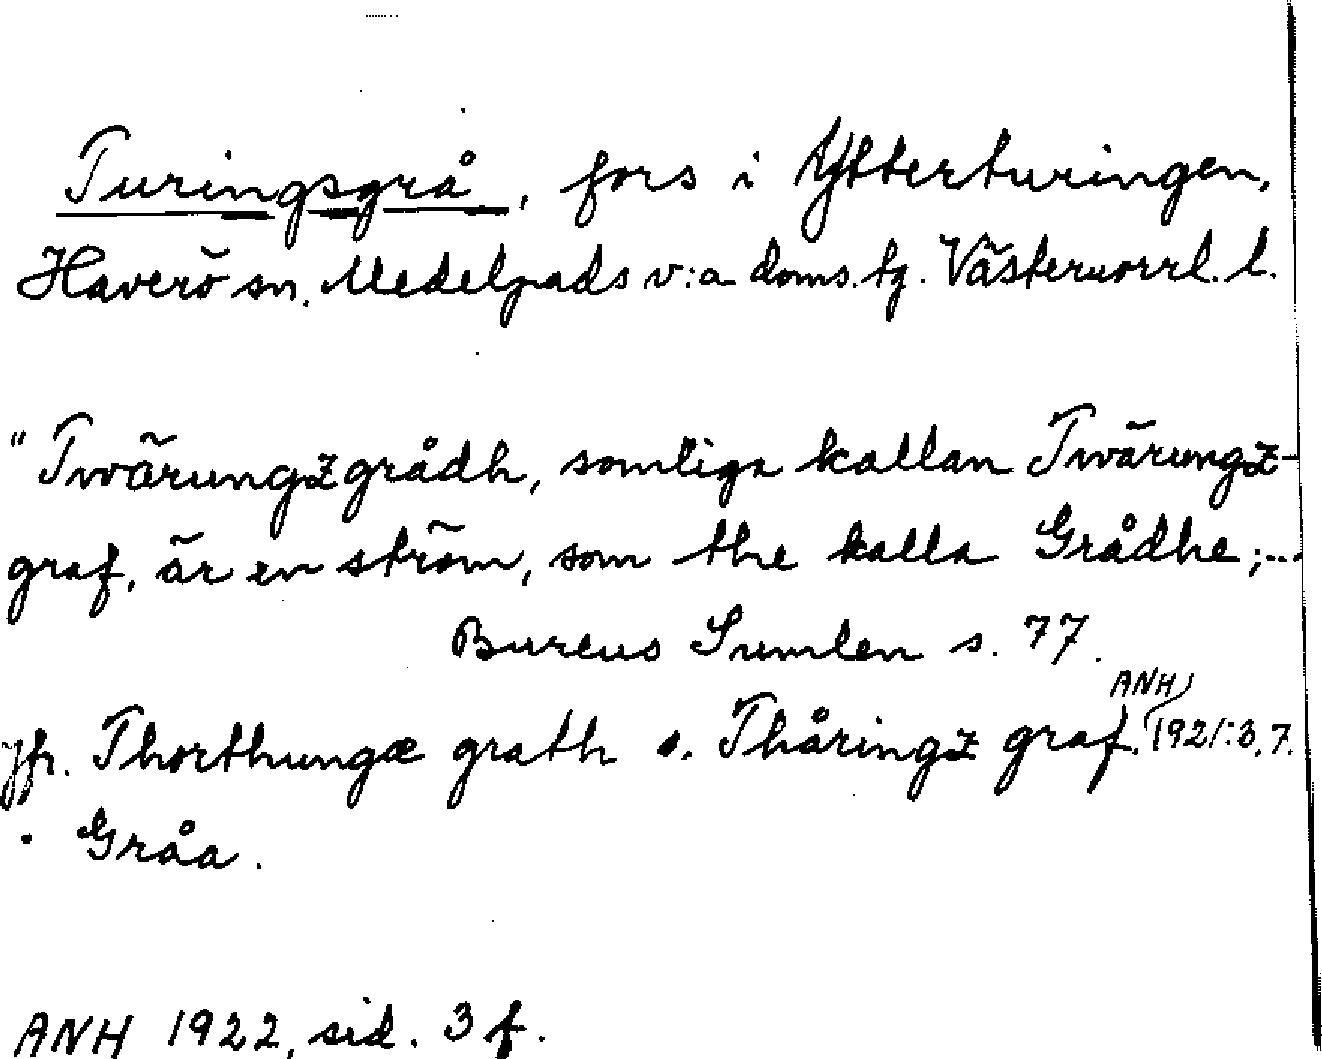 Turingsgrå, fors i Ytterturingen,
Haverö sn. Medelpads v:a doms. tg. Västernorrl. l.
"Twärungzgrådh, somliga kallan Twärungz-
graf, är en ström, som the kalla Grådhe;...
Bureus Sumlen s. 77.
jfr. Thorthungæ grath o. Thåringz graf. ANH 1921:3,7.
· Gråa.
ANH 1922, sid. 3 f.